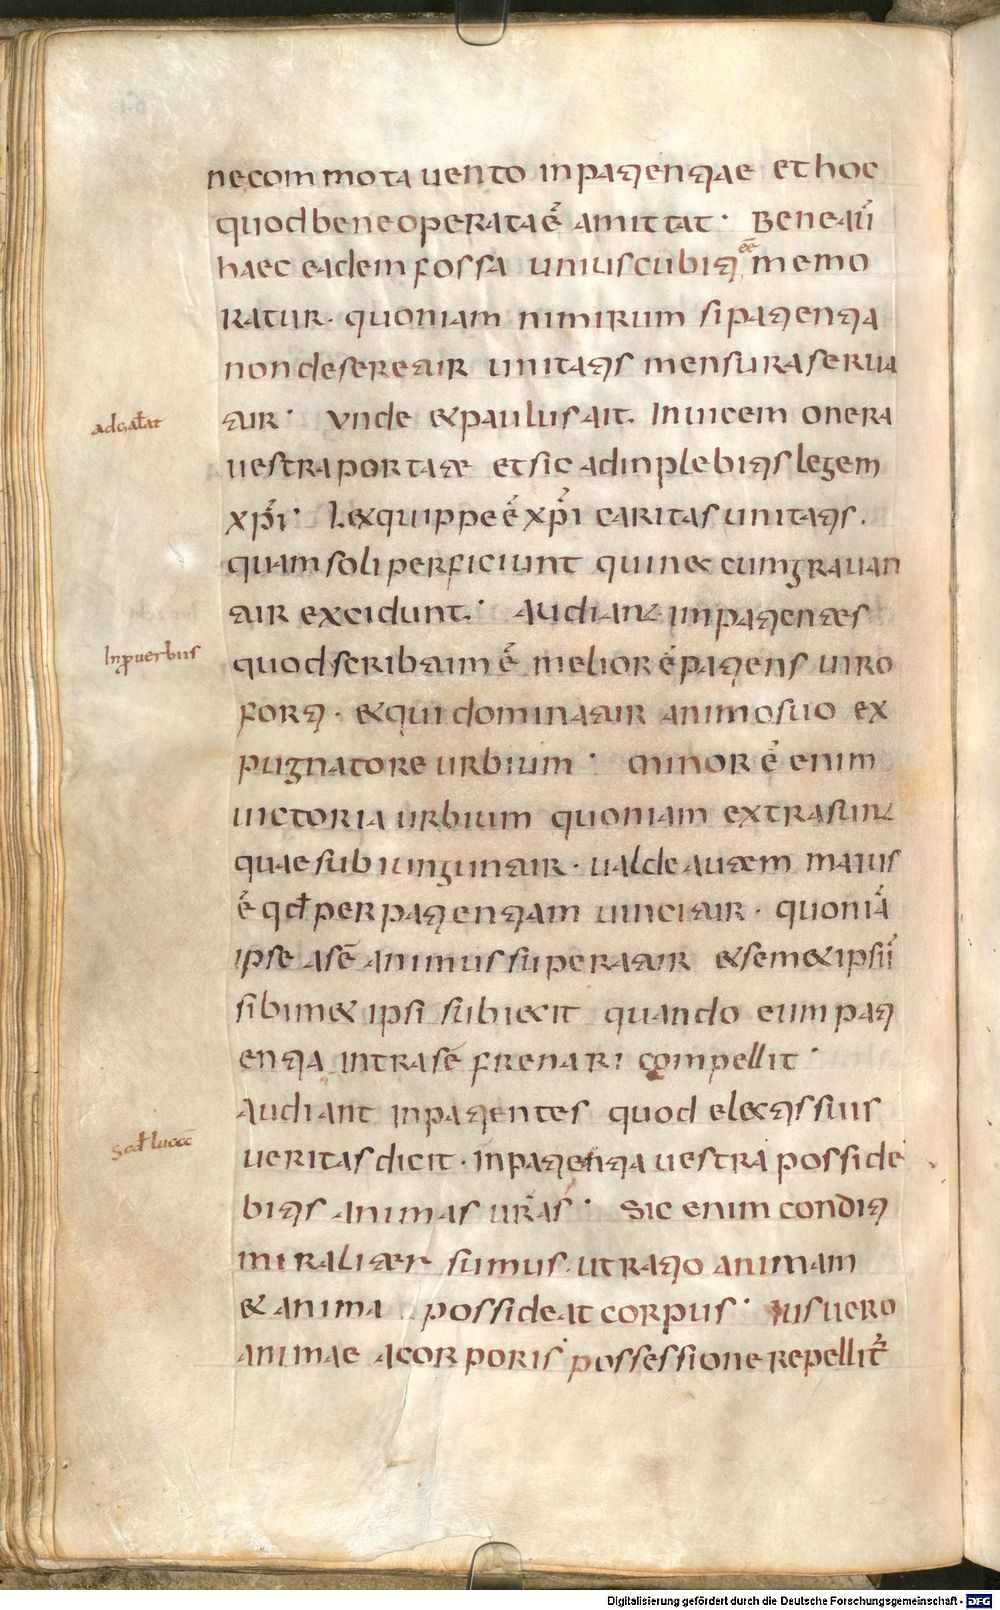 necommota uento inpatientiae et hoc
quod bene operata ē amittat · Bene aū
haec eadem fossa unius cubiti ēē memo
ratur · quoniam nimirum si patientia
non deseretur unitatis mensura serua
adgalat
tur · Vnde & paulus ait. Inuicem onera
uestra portate et sic adinplebitis legem
xp̄i · Lex quippe ē xp̄i caritas unitatis .
quam soli perficiunt qui nec cum grauan
tur excidunt. · Audiant inpatientes
Inp̱uerbiis
quod scribtum ē melior ē patiens uiro
forti · & qui dominatur animo suo ex
pugnatore urbium · Minor ē enim
uictoria urbium quoniam extra sunt
quae subiunguntur · ualde autem maius
ē qđ per patientiam uincitur · quoniā
ipse a sē animus superatur & semetipsū
sibimet ipsi subiecit quando eum pati
entia intra sē frenari compellit ·
Audiant inpatientes quod electis suis
Scđ luccc
ueritas dicit · in patientia uestra posside
bitis animas ur̄as · Sic enim conditi
mirabiliter sumus . ut ratio animam
& anima possideat corpus · Ius uero
animae a corporis possessione repellit̄
Digitalisierung gefördert durch die Deutsche Forschungsgemeinschaft - DFG